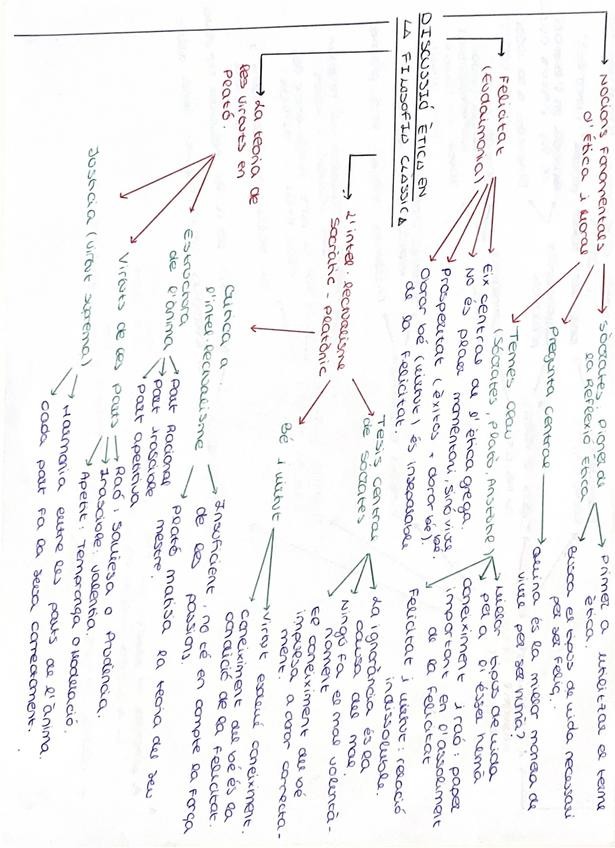 DISCUSSIÓ ÈTICA EN
LA FILOSOFIA CLÀSSICA
Nocions Fonamentals
d'Ètica i Moral
Sòcrates: Pioner de
la Reflexió Ètica
Primer a utilitzar el terme
ètica.
Busca el tipus de vida necessari
per ser feliç.
Pregunta Central
Quina és la millor manera de
viure per ser humà?
Temes clau
(Sòcrates, Plató, Aristòtil)
Millor tipus de vida
per a l'ésser humà
Coneiximent i raó: paper
important en l'assoliment
de la felicitat
Felicitat i virtut: relació
indissoluble.
Felicitat
(Eudaimonia)
Eix central de l'ètica grega.
No és plaer momentani, sinó viure bé.
Prosperitat (èxitos + obrar bé).
Obrar bé (virtut) és inseparable
de la felicitat.
L'intel·lectualisme
Socràtic-Platònic
Tesis central
de Sòcrates
La ignorància és la
causa del mal.
Ningú fa el mal voluntà-
riament
El coneiximent del bé
impulsa a obrar correcta-
ment.
Bé i virtut
Virtut exigeix coneiximent.
Coneiximent del bé és la
condició de la felicitat.
Crítica a
l'intel·lectualisme
Insuficient, no té en compte la força
de les passions.
Plató matisa la teoria del seu
mestre.
La teoria de
les virtuts en
Plató.
Estructura
de l'ànima
Part Racional
Part irascible
Part apetitiva
Virtuts de les parts
Raó: Saviesa o Prudència.
Irascible: valentia.
Apetit: Temprança o Moderació.
Justícia (virtut suprema)
Harmonia entre les parts de l'ànima.
Cada part fa la seva correctament.